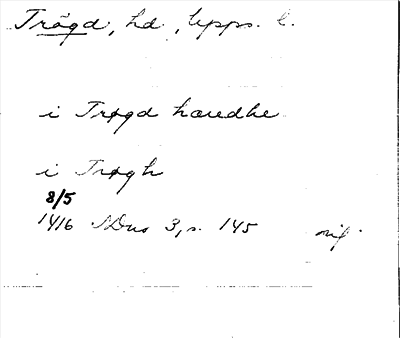 Trögd, hd, Upps. l.
i Trøgd hæredhe
i Trøgh
8/5
1416 SDns 3, s. 145 orig.